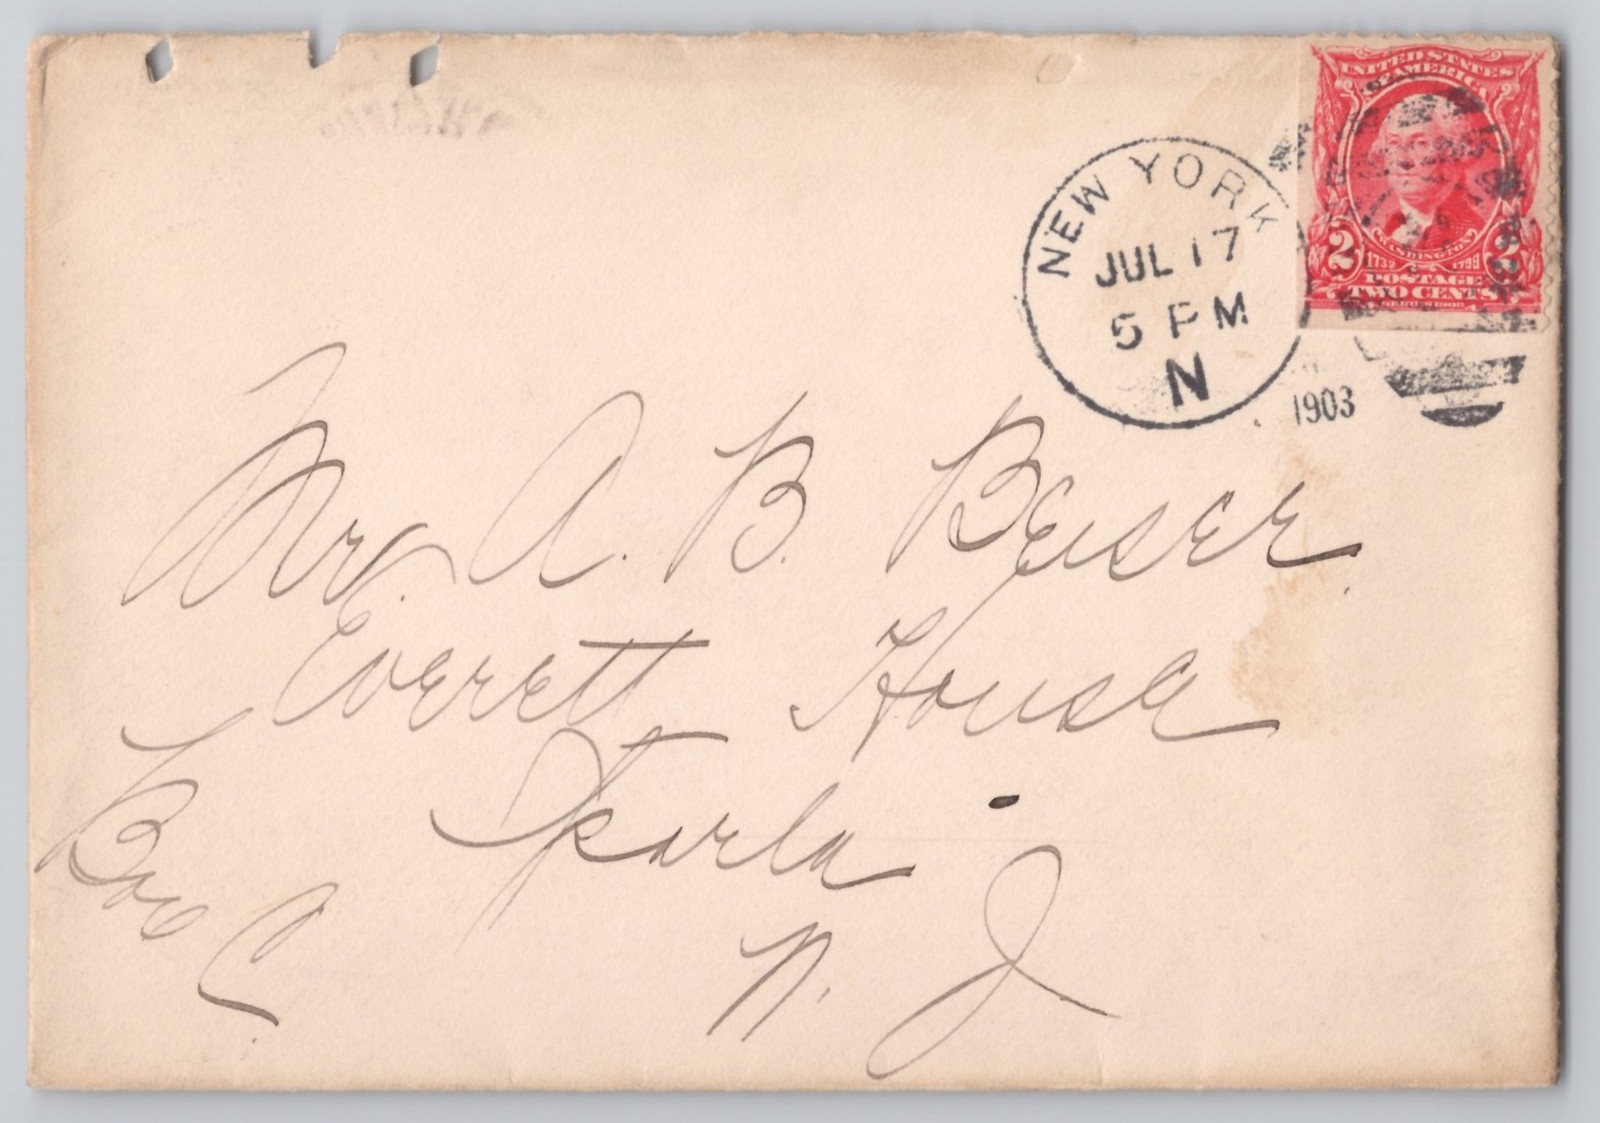 UNITED STATES
OF AMERICA
WASHINGTON
2 1732 1799 2
POSTAGE
TWO CENTS
SERIES 1902
NEW YORK
JUL 17
5 PM
N
1903
Mr. A. B. Beiser
Everett House
Sparta
N. J.
Box C